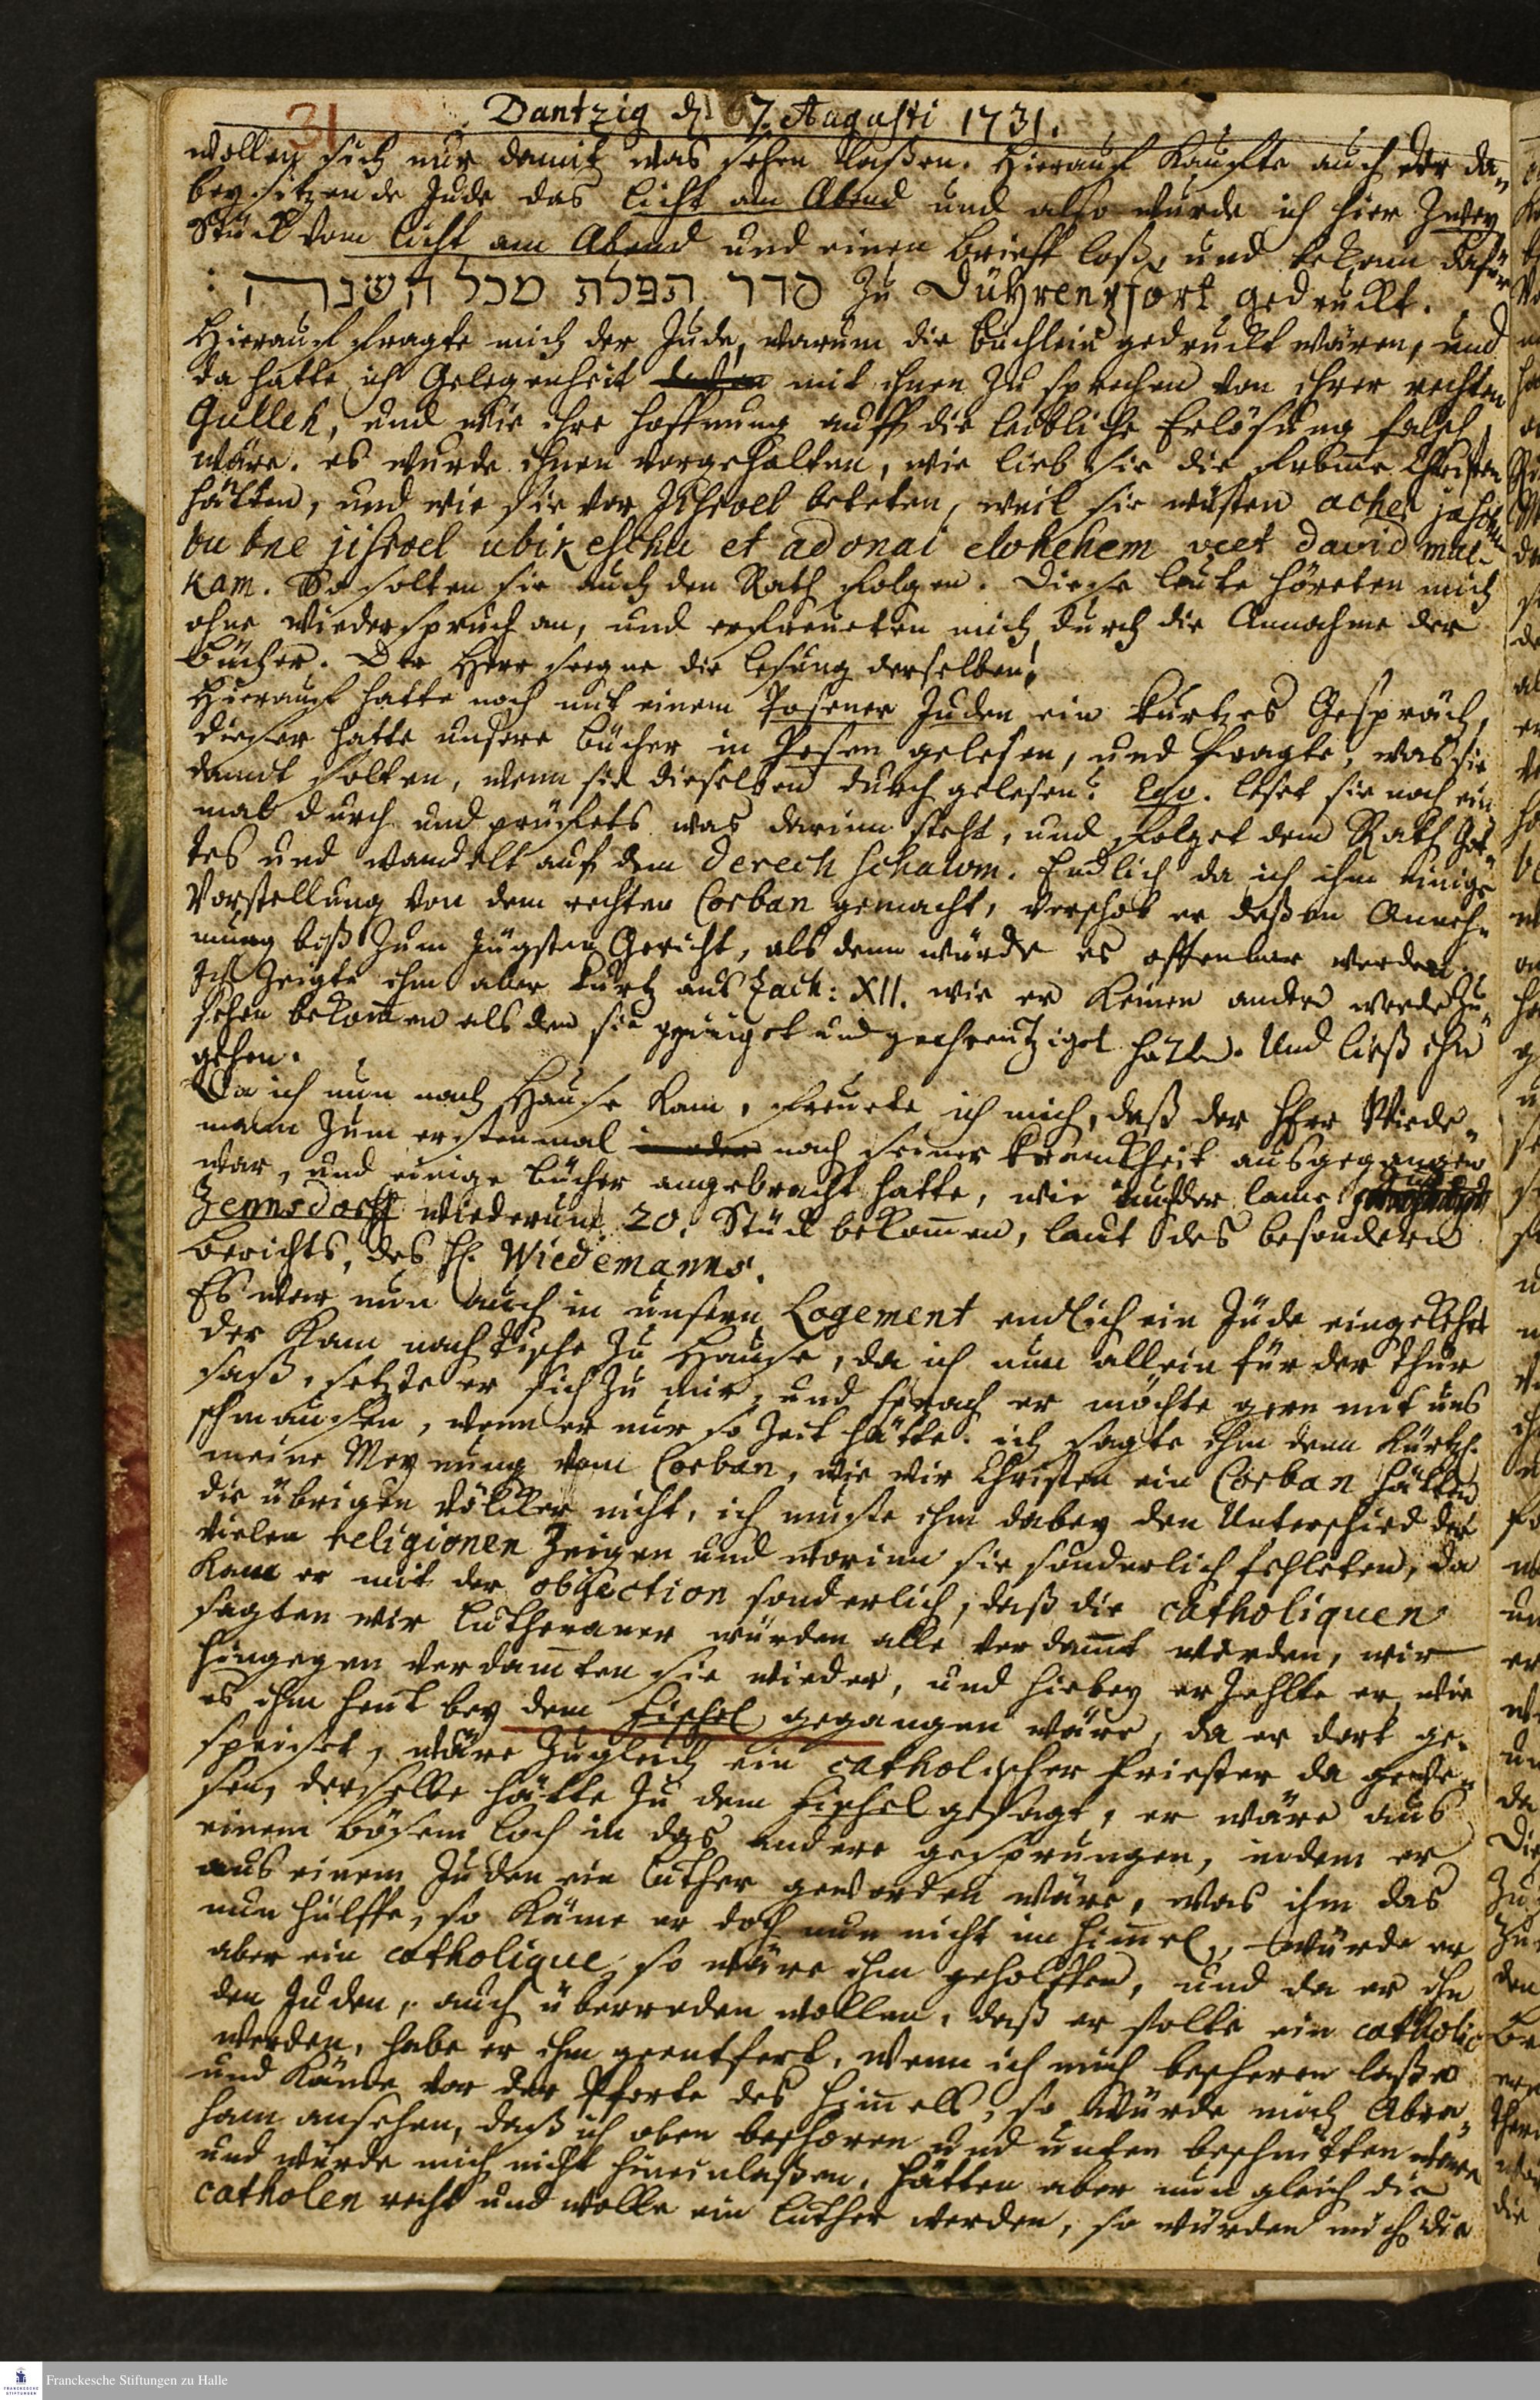 31
Dantzig d. 7. Augusti 1731.
wollen sich nur damit was sehen laßen. Hierauf kauffte auch der da-
beysitzende Jude das licht am Abend und also wurde ich hier zwey
Stück vom licht am Abend und einen brieff loß, und bekam dafür
סדר תפלת מכל השנה : zu Dührenfort gedruckt.
Hierauf fragte mich der Jude, warum die büchlein gedruckt wären, und
da hatte ich Gelegenheit mit ihnen zu sprechen von ihrer rechten
Gulleh, und wie ihre Hoffnung auff die leibliche Erlösung falsch
wäre. es wurde ihnen vorgehalten, wie lieb sie die fromme Christen
hätten, und wie sie vor Jisroel beteten, weil sie wüsten acher jaschu-
bu bne jisroel ubikeschu et adonai elohehem veet david mal-
kam. So solten sie auch den Rath folgen. Diese leute höreten mich
ohne Wiederspruch an, und erfreueten mich durch die Annahme der
bücher. Der Herr seegne die lesung derselben!
Hierauf hatte noch mit einem Posener Juden ein kurtzes Gespräch,
dieser hatte unsere bücher in Posen gelesen, und fragte, was sie
damit solten, wenn sie dieselben durch gelesen? Ego. leset sie noch ein
mal durch und prüfets was darinn steht, und folget dem Rath Got-
tes und wandelt auf dem derech schalom. Endlich da ich ihm einige
Vorstellung von dem rechten Corban gemacht, verschob er deßen Anneh-
mung biß zum jüngsten Gericht, als denn würde es offenbar werden.
Ich zeigte ihm aber kurtz aus Zach: XII. wie er keinen andern werde zu
sehen bekommen als den sie gepeiniget und gecreutziget hatten. Und ließ ihn
gehen.
Da ich nun nach Hause kam, freuete ich mich, daß der Herr Wiede-
mann zum erstenmal nach seiner kranckheit ausgegangen
war, und einige bücher angebracht hatte, wie auch der lame
Zennsdorff wiederum 20. Stück bekommen, laut des besondern
berichts, des H. Wiedemanns.
Es war nun auch in unsern Logement endlich ein Jude eingekehrt
der kam nach tische zu Hause, da ich nun allein für der thür
saß, setzte er sich zu mir, und sprach er möchte gern mit uns
schmausen, wenn er nur so Zeit hätte. ich sagte ihm denn kürtzl.
meine Meynung vom Corban, wie wir Christen ein Corban hätten
die übrigen völcker nicht, ich muste ihm dabey den Unterschied der
vielen religionen zeigen und worinn sie sonderlich fehleten, da
kam er mit der objection sonderlich, daß die catholiquen
sagten wir lutheraner würden alle verdammt werden, wir
hingegen verdammten sie wieder, und hiebey erzehlte er, wie
es ihm heut bey dem Fischel gegangen wäre, da er dort ge-
speiset, wäre zugleich ein catholischer Priester da gewe-
sen, derselbe hätte zu dem Fischel gesagt, er wäre aus
einem bösem loch in das andere gesprungen, indem er
aus einem Juden ein luther geworden wäre, was ihm das
nun hülffe, so käme er doch nun nicht im himmel, würde er
aber ein catholique, so wäre ihm geholffen, und da er ihn
den Juden, auch überreden wollen, daß er solte ein catholic
werden, habe er ihm geantwort, wenn ich mich bescheren laße
und käme vor der Pforte des Himmels, so würde mich Abra-
ham ansehen, daß ich oben beschoren und unten beschnitten wäre
und würde mich nicht hineinlaßen. hätten aber nun gleich die
catholen recht und wolle ein luther werden, so würden mich die
Franckesche Stiftungen zu Halle